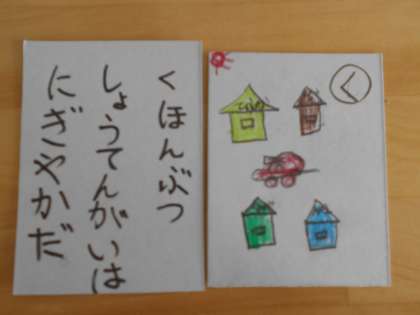 くほんぶつ
しょうてんがいは
にぎやかだ
く